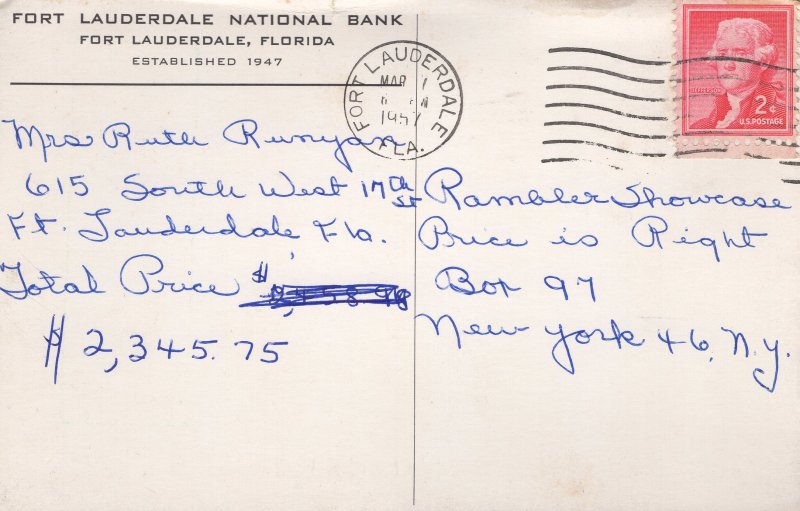 FORT LAUDERDALE NATIONAL BANK
FORT LAUDERDALE, FLORIDA
ESTABLISHED 1947
FORT LAUDERDALE
MAR 1
1957
FLA.
JEFFERSON
2¢
U.S. POSTAGE
Mrs Ruth Runyan
615 South West 17th St
Ft. Lauderdale, Fla.
Total Price $
$2,345.75
Rambler Showcase
Price is Right
Box 97
New York 46, N.Y.